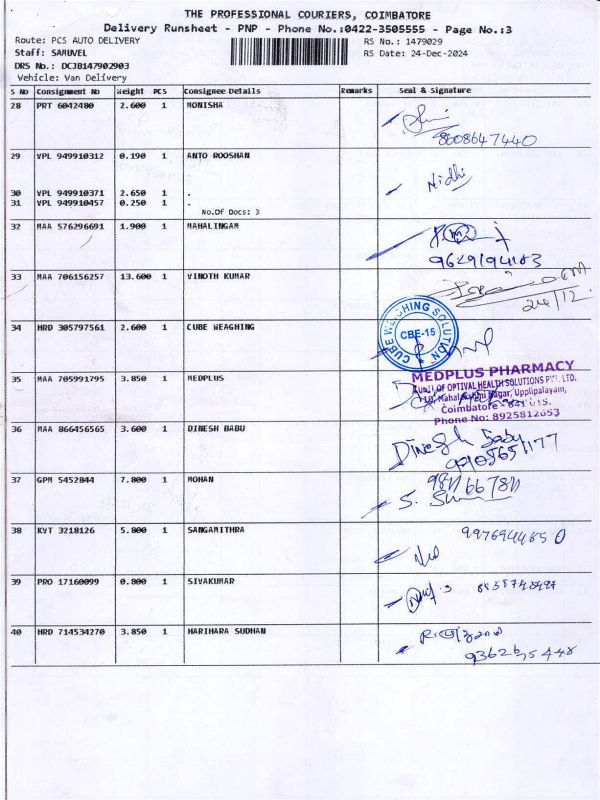 THE PROFESSIONAL COURIERS, COIMBATORE
Delivery Runsheet - PNP - Phone No.:0422-3505555 - Page No.:3
Route: PCS AUTO DELIVERY RS No.: 1479029
Staff: SAMUVEL RS Date: 24-Dec-2024
DRS No.: DCJB147902903
Vehicle: Van Delivery
S No Consignment No Weight PCS Consignee Details Remarks Seal & Signature
28 PRT 6042480 2.600 1 MONISHA
8608647440
29 VPL 949910312 0.190 1 ANTO ROOSHAN
Nidhi
30 VPL 949910371 2.650 1 .
31 VPL 949910457 0.250 1 .
No.Of Docs: 3
32 MAA 576296691 1.900 1 MAHALINGAM
9629194183
33 MAA 706156257 13.600 1 VINOTH KUMAR
24/12
34 HRD 305797561 2.600 1 CUBE WEAGHING
CUBE WEIGHING SOLUTION
CBE-15
35 MAA 705991795 3.850 1 MEDPLUS
MEDPLUS PHARMACY
A UNIT OF OPTIVAL HEALTH SOLUTIONS PVT. LTD.
Mahalakshmi Nagar, Upplipalayam,
Coimbatore - 641 015.
Phone No: 8925812653
36 MAA 866456565 3.600 1 DINESH BABU
Dinesh Babu
37 GPM 5452844 7.800 1 MOHAN
38 KVT 3218126 5.800 1 SANGAMITHRA
9976944650
39 PRO 17160099 0.800 1 SIVAKUMAR
40 HRD 714534270 3.850 1 HARIHARA SUDHAN